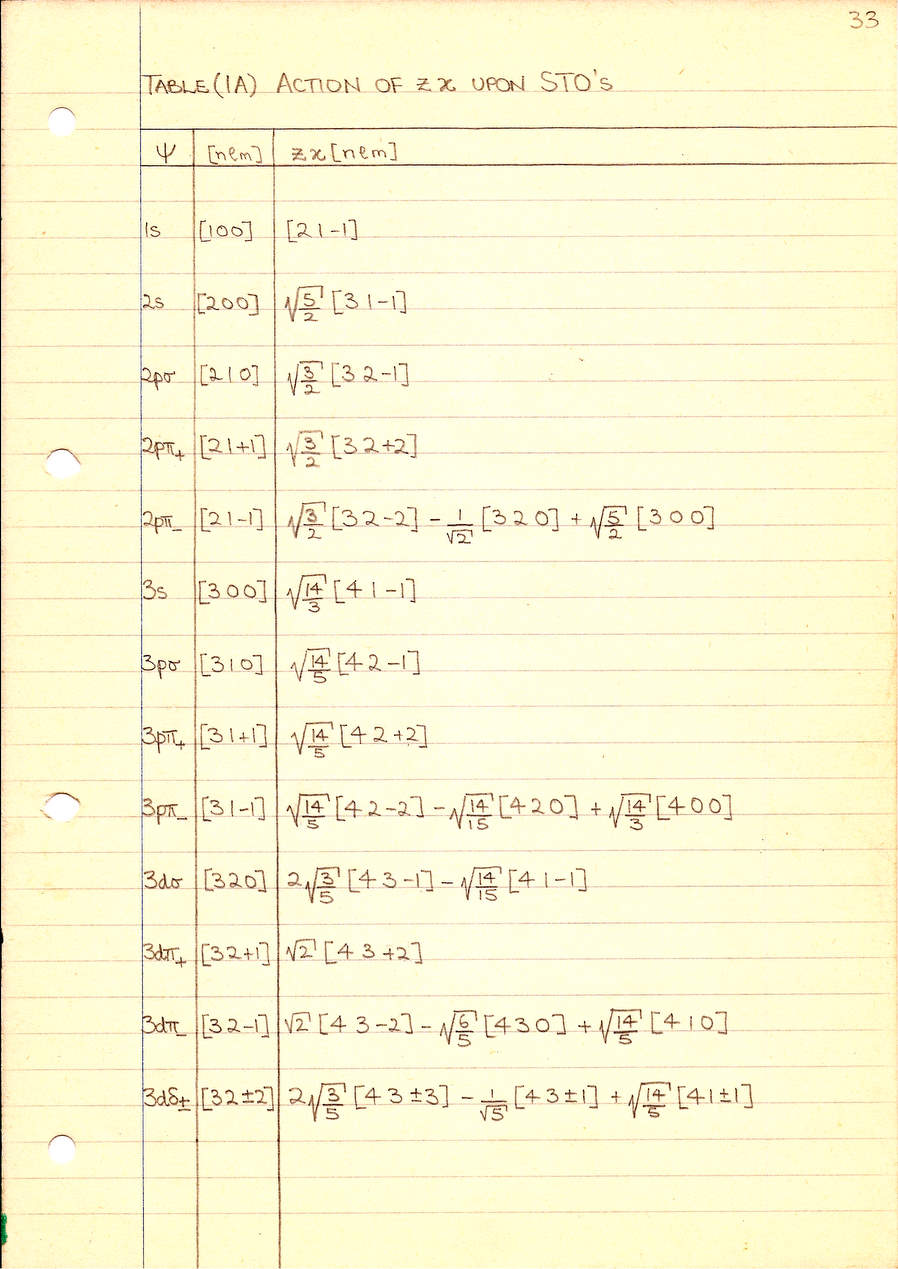 33
TABLE (1A) ACTION OF z x UPON STO's
ψ [nlm] zx[nlm]
1s [100] [21-1]
2s [200] √(5/2) [31-1]
2pσ [210] √(3/2) [32-1]
2pπ₊ [21+1] √(3/2) [32+2]
2pπ₋ [21-1] √(3/2) [32-2] - 1/√2 [320] + √(5/2) [300]
3s [300] √(14/3) [41-1]
3pσ [310] √(14/5) [42-1]
3pπ₊ [31+1] √(14/5) [42+2]
3pπ₋ [31-1] √(14/5) [42-2] - √(14/15) [420] + √(14/3) [400]
3dσ [320] 2√(3/5) [43-1] - √(14/15) [41-1]
3dπ₊ [32+1] √2 [43+2]
3dπ₋ [32-1] √2 [43-2] - √(6/5) [430] + √(14/5) [410]
3dδ± [32±2] 2√(3/5) [43±3] - 1/√5 [43±1] + √(14/5) [41±1]